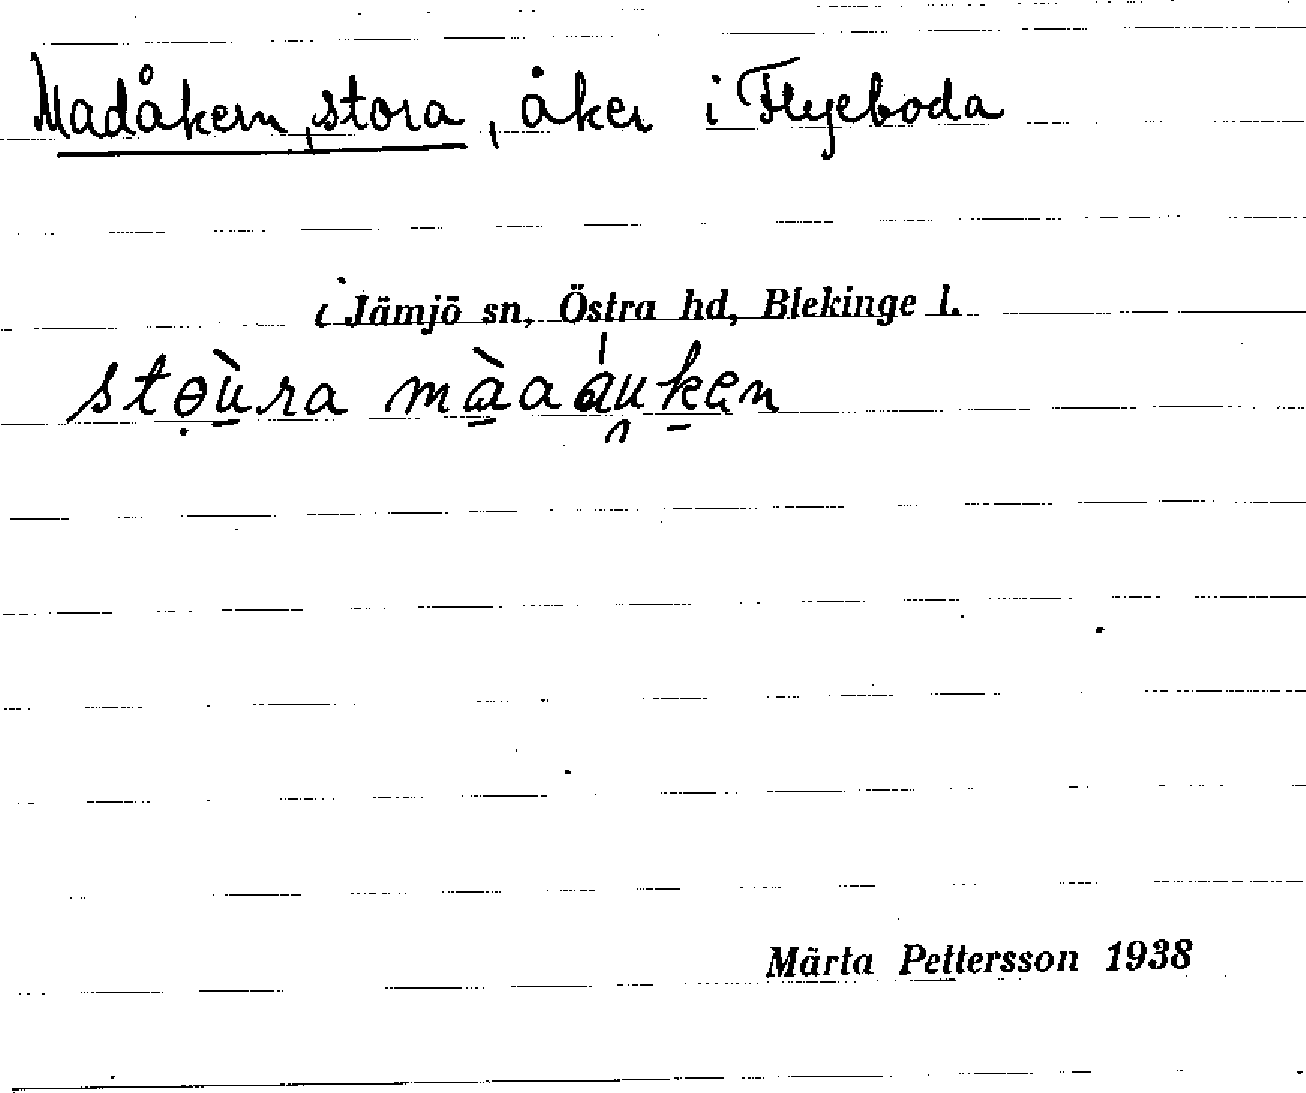 Madåkern, stora, åker i Flyeboda
i Jämjö sn, Östra hd, Blekinge l.
stọù̱ra mà̱aáu̯ḵen
Märta Pettersson 1938